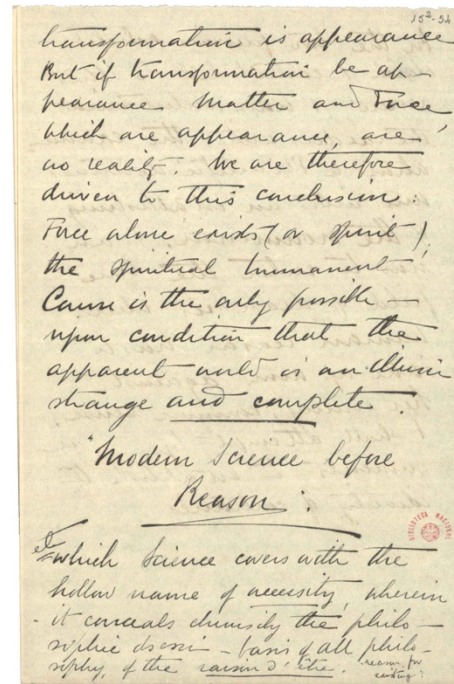 15²-54
transformation is appearance
But if transformation be ap-
pearance matter and Force,
which are appearance, are
no reality. We are therefore
driven to this conclusion:
Force alone exists (or spirit),
the spiritual immanent
Cause is the only possible –
upon condition that the
apparent world is an illusion
strange and complete.
"Modern Science before
Reason".
which Science covers with the
hollow name of necessity, wherein
it conceals clumsily the philo-
sophic – basis of all philo-
sophy, of the raison d'être. reason for
existing?
BIBLIOTECA NACIONAL